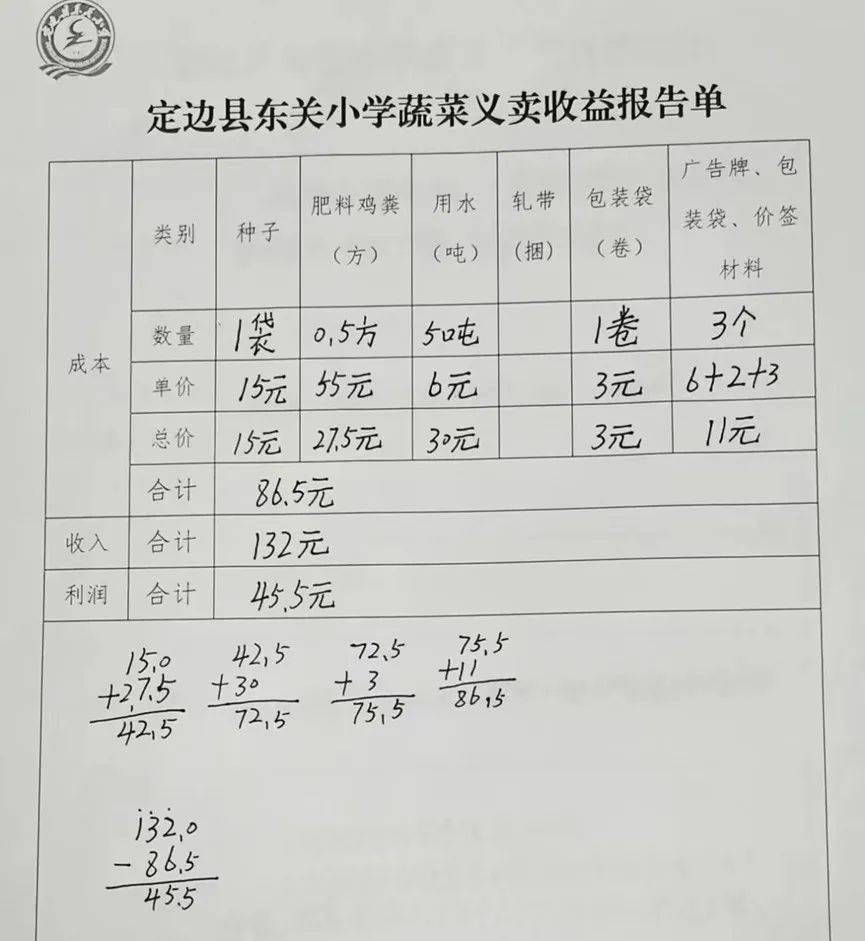 定边县东关小学蔬菜义卖收益报告单
成本
类别 种子 肥料鸡粪（方） 用水（吨） 轧带（捆） 包装袋（卷） 广告牌、包装袋、价签材料
数量 1袋 0.5方 5吨 1卷 3个
单价 15元 55元 6元 3元 6+2+3
总价 15元 27.5元 30元 3元 11元
合计 86.5元
收入 合计 132元
利润 合计 45.5元
15.0 42.5 72.5 75.5
+27.5 +30 +3 +11
42.5 72.5 75.5 86.5
132.0
-86.5
45.5